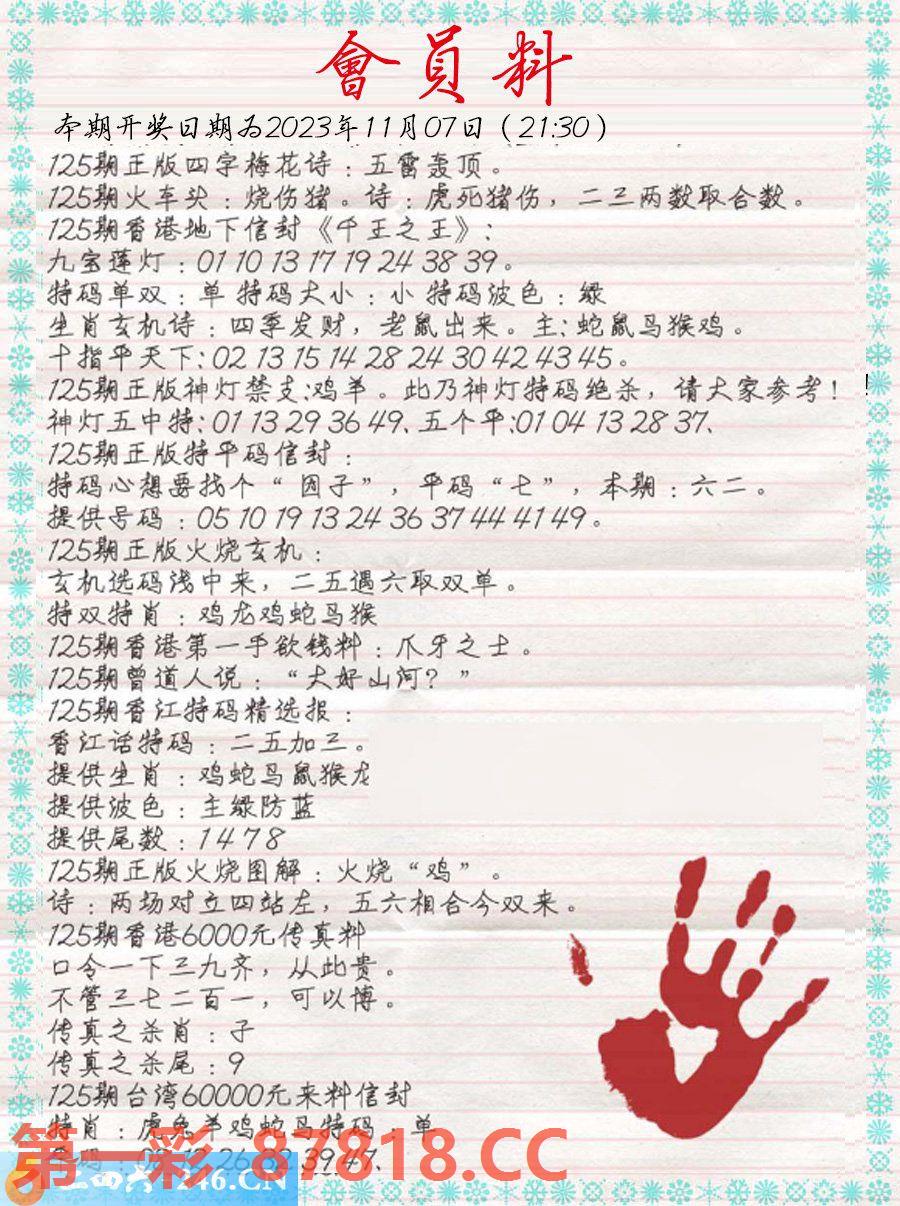 會員料
本期开奖日期为2023年11月07日（21:30）
125期正版四字梅花诗：五雷轰顶。
125期火车头：烧伤猪。诗：虎死猪伤，二三两数取合数。
125期香港地下信封《千王之王》：
九宝莲灯：01 10 13 17 19 24 38 39。
特码单双：单 特码大小：小 特码波色：绿
生肖玄机诗：四季发财，老鼠出来。主：蛇鼠马猴鸡。
十指平天下：02 13 15 14 28 24 30 42 43 45。
125期正版神灯禁支：鸡羊。此乃神灯特码绝杀，请大家参考！！
神灯五中特：01 13 29 36 49、五个平：01 04 13 28 37、
125期正版特平码信封：
特码心想要找个“因子”，平码“七”，本期：六二。
提供号码：05 10 19 13 24 36 37 44 41 49。
125期正版火烧玄机：
玄机选码浅中来，二五遇六取双单。
特双特肖：鸡龙鸡蛇马猴
125期香港第一手欲钱料：爪牙之士。
125期曾道人说：“大好山河？”
125期香江特码精选报：
香江话特码：二五加三。
提供生肖：鸡蛇马鼠猴龙
提供波色：主绿防蓝
提供尾数：1 4 7 8
125期正版火烧图解：火烧“鸡”。
诗：两场对立四站左，五六相合今双来。
125期香港6000元传真料
口令一下三九齐，从此贵。
不管三七二百一，可以博。
传真之杀肖：子
传真之杀尾：9
125期台湾60000元来料信封
特肖：虎兔羊鸡蛇马特码：单
26 32 39 47、
第一彩 87818.CC
246.CN